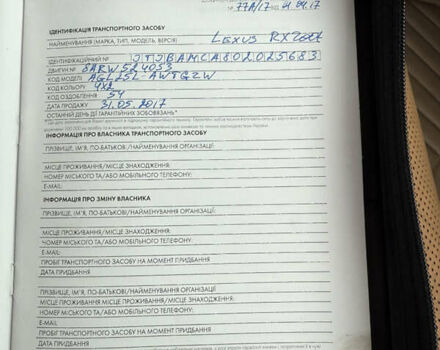 № 77А/17 ВІД 21.04.17
ІДЕНТИФІКАЦІЯ ТРАНСПОРТНОГО ЗАСОБУ
НАЙМЕНУВАННЯ (МАРКА, ТИП, МОДЕЛЬ, ВЕРСІЯ) LEXUS RX200t
ІДЕНТИФІКАЦІЙНИЙ № JTJBAMCA802025683
ДВИГУН № 8ARW524053
КОД МОДЕЛІ AGL25L-AWTGZW
КОД КОЛЬОРУ 4X2
КОД ОЗДОБЛЕННЯ 54
ДАТА ПРОДАЖУ 31.05.2017
ОСТАННІЙ ДЕНЬ ДІЇ ГАРАНТІЙНИХ ЗОБОВ'ЯЗАНЬ*
ІНФОРМАЦІЯ ПРО ВЛАСНИКА ТРАНСПОРТНОГО ЗАСОБУ
ПРІЗВИЩЕ, ІМ'Я, ПО-БАТЬКОВІ/НАЙМЕНУВАННЯ ОРГАНІЗАЦІЇ
МІСЦЕ ПРОЖИВАННЯ/МІСЦЕ ЗНАХОДЖЕННЯ:
НОМЕР МІСЬКОГО ТА/АБО МОБІЛЬНОГО ТЕЛЕФОНУ:
E-MAIL:
ІНФОРМАЦІЯ ПРО ЗМІНУ ВЛАСНИКА
ПРІЗВИЩЕ, ІМ'Я, ПО-БАТЬКОВІ/НАЙМЕНУВАННЯ ОРГАНІЗАЦІЇ:
МІСЦЕ ПРОЖИВАННЯ/МІСЦЕ ЗНАХОДЖЕННЯ:
НОМЕР МІСЬКОГО ТА/АБО МОБІЛЬНОГО ТЕЛЕФОНУ:
E-MAIL:
ПРОБІГ ТРАНСПОРТНОГО ЗАСОБУ НА МОМЕНТ ПРИДБАННЯ
ДАТА ПРИДБАННЯ
ПРІЗВИЩЕ, ІМ'Я, ПО-БАТЬКОВІ/НАЙМЕНУВАННЯ ОРГАНІЗАЦІЇ:
МІСЦЕ ПРОЖИВАННЯ МІСЦЕ ПРОЖИВАННЯ/МІСЦЕ ЗНАХОДЖЕННЯ:
НОМЕР МІСЬКОГО ТА/АБО МОБІЛЬНОГО ТЕЛЕФОНУ:
E-MAIL:
ПРОБІГ ТРАНСПОРТНОГО ЗАСОБУ НА МОМЕНТ ПРИДБАННЯ
ДАТА ПРИДБАННЯ